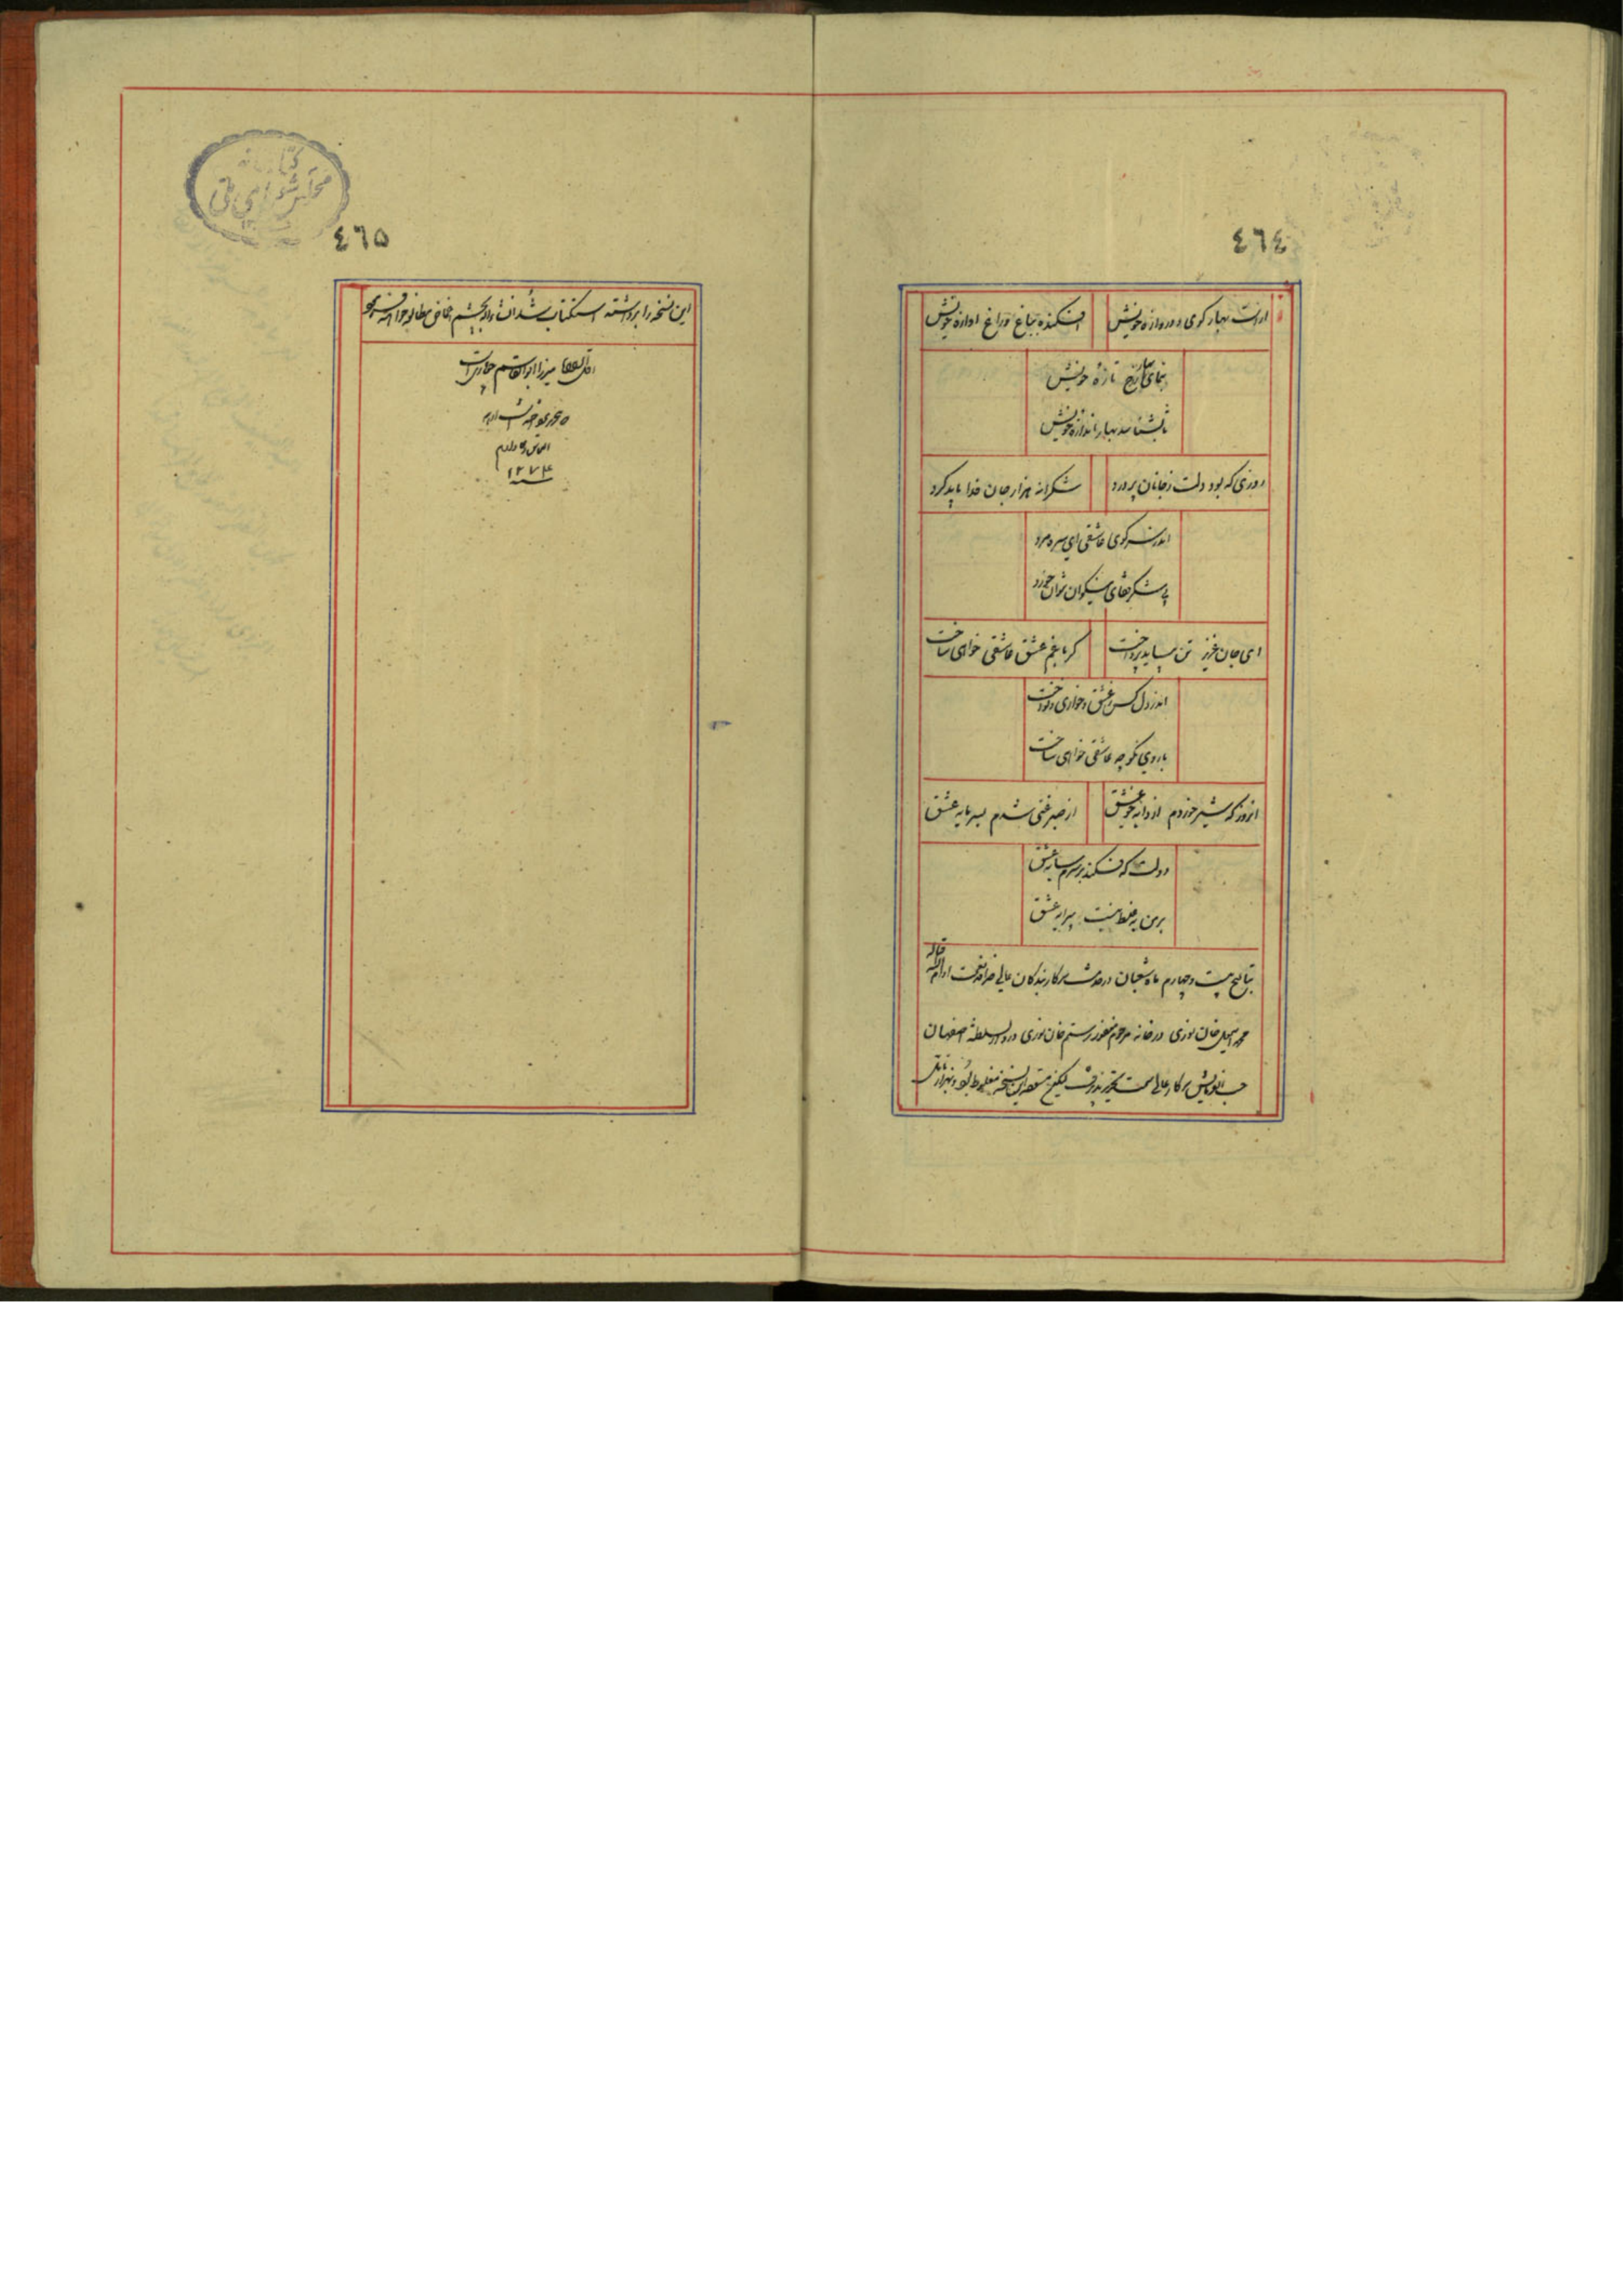 ٤٦٤
اراست بهار کوی و دروازه خویش
افکنده بباغ و راغ اوازه خویش
بنمای بهار را رخ تازه خویش
تا بشناسد بهار اندازه خویش
روزی که بود دلت ز جانان پر درد
شکرانه هزار جان فدا باید کرد
اندر سر کوی عاشقی ای سره مرد
بی شکر قفای نیکوان نتوان خورد
ای جان عزیز تن بباید پرداخت
گر با غم عشق عاشقی خواهی ساخت
اندر دل کس عشق و خواری و نواخت
با روی نکو چه عاشقی خواهی ساخت
انروز که شیر خوردم از دایه عشق
از صبر غنی شدم بسرمایه عشق
دولت که فکند بر سرم سایه عشق
بر من به غلط ببست پیرایه عشق
بتاریخ بیست و چهارم ماه شعبان در خدمت سرکار بندکان عالی ادام الله
محمد اسمعیل خان نوری در خانه مرحوم مغفور رستم خان نوری در دارالسلطنه اصفهان
حسب الفرمایش سرکار عالی سمت تحریر پذیرفت لیکن نسخه مغلوط بود
٤٦٥
کتابخانه
مجلس شورای ملی
این نسخه را برداشته استکتاب شد انشاءالله بچشم اغماض مطالعه خواهند فرمود
میرزا ابوالقاسم
التماس دعا دارم
سنه ۱۲۷۴